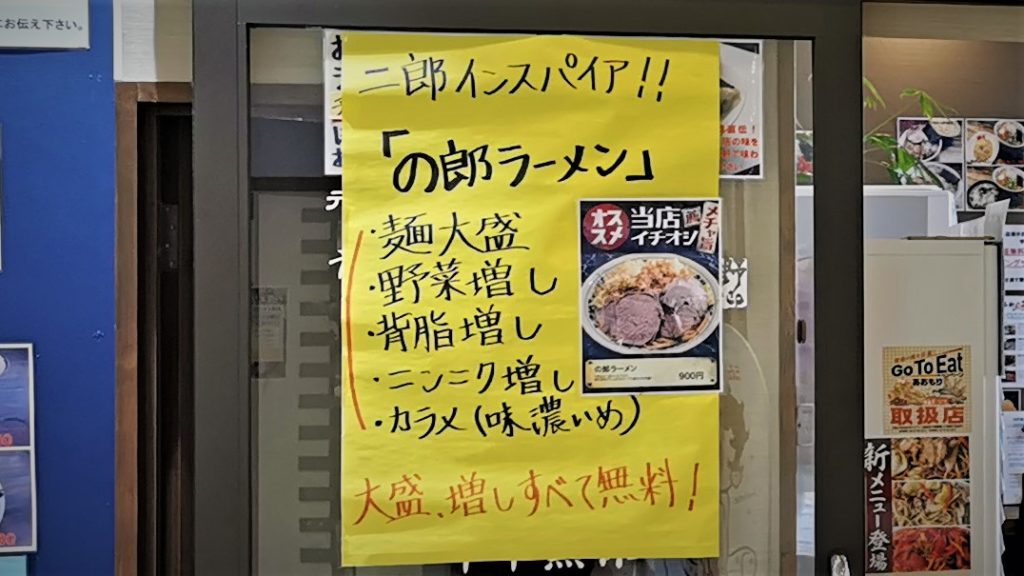 にお伝え下さい。
二郎インスパイア!!
「の郎ラーメン」
・麺大盛
・野菜増し
・背脂増し
・ニンニク増し
・カラメ(味濃いめ)
大盛、増しすべて無料!
オススメ
当店
イチオシ
メチャ旨
の郎ラーメン
900円
Go To Eat
あおもり
取扱店
新メニュー登場